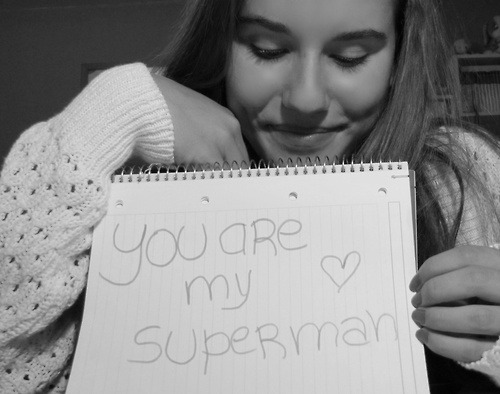 YOU ARE
my ♡
SUPERMAN